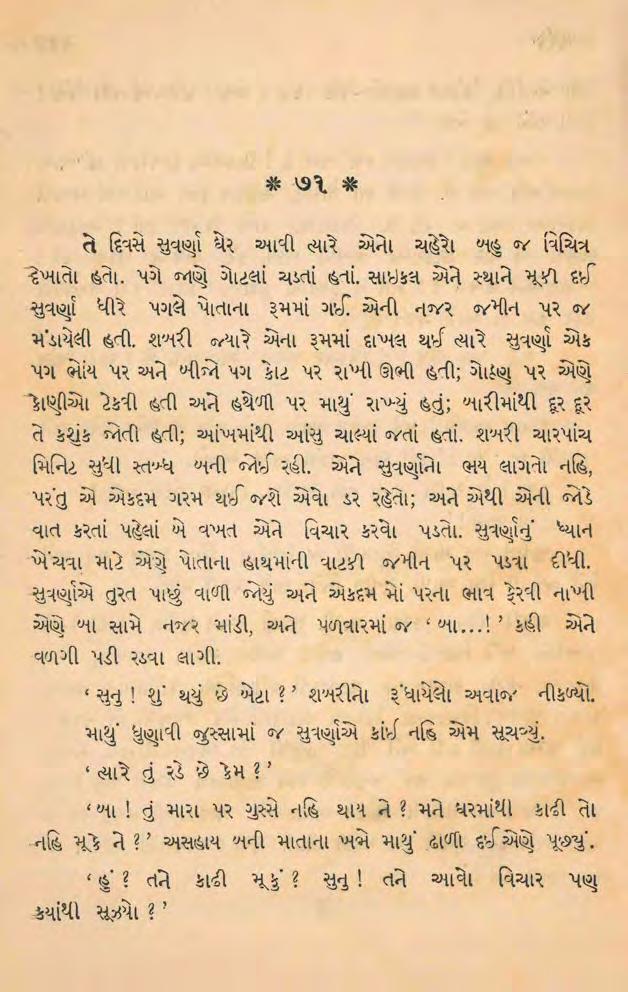 * ૭૧ *
તે દિવસે સુવર્ણા ઘેર આવી ત્યારે એનો ચહેરો બહુ જ વિચિત્ર
દેખાતો હતો. પગે જાણે ગોટલાં ચડતાં હતાં. સાઇકલ એને સ્થાને મૂકી દઈ
સુવર્ણા ધીરે પગલે પોતાના રૂમમાં ગઈ. એની નજર જમીન પર જ
મંડાયેલી હતી. શબરી જ્યારે એના રૂમમાં દાખલ થઈ ત્યારે સુવર્ણા એક
પગ ભોંય પર અને બીજો પગ કોટ પર રાખી ઊભી હતી; ગોઠણ પર એણે
કોણીઓ ટેકવી હતી અને હથેળી પર માથું રાખ્યું હતું; બારીમાંથી દૂર દૂર
તે કશુંક જોતી હતી; આંખમાંથી આંસુ ચાલ્યાં જતાં હતાં. શબરી ચારપાંચ
મિનિટ સુધી સ્તબ્ધ બની જોઈ રહી. એને સુવર્ણાનો ભય લાગતો નહિ,
પરંતુ એ એકદમ ગરમ થઈ જશે એવો ડર રહેતો; અને એથી એની જોડે
વાત કરતાં પહેલાં બે વખત એને વિચાર કરવો પડતો. સુવર્ણાનું ધ્યાન
ખેંચવા માટે એણે પોતાના હાથમાંની વાટકી જમીન પર પડવા દીધી.
સુવર્ણાએ તુરત પાછું વાળી જોયું અને એકદમ મોં પરના ભાવ ફેરવી નાખી
એણે બા સામે નજર માંડી, અને પળવારમાં જ ‘બા...!’ કહી એને
વળગી પડી રડવા લાગી.
‘સુનુ ! શું થયું છે બેટા ?’ શબરીનો રૂંધાયેલો અવાજ નીકળ્યો.
માથું ધુણાવી જુસ્સામાં જ સુવર્ણાએ કાંઈ નહિ એમ સૂચવ્યું.
‘ત્યારે તું રડે છે કેમ ?’
‘બા ! તું મારા પર ગુસ્સે નહિ થાય ને ? મને ઘરમાંથી કાઢી તો
નહિ મૂકે ને ?’ અસહાય બની માતાના ખભે માથું ઢાળી દઈ એણે પૂછ્યું.
‘હું ? તને કાઢી મૂકું ? સુનુ ! તને આવો વિચાર પણ
કયાંથી સૂઝયો ?’